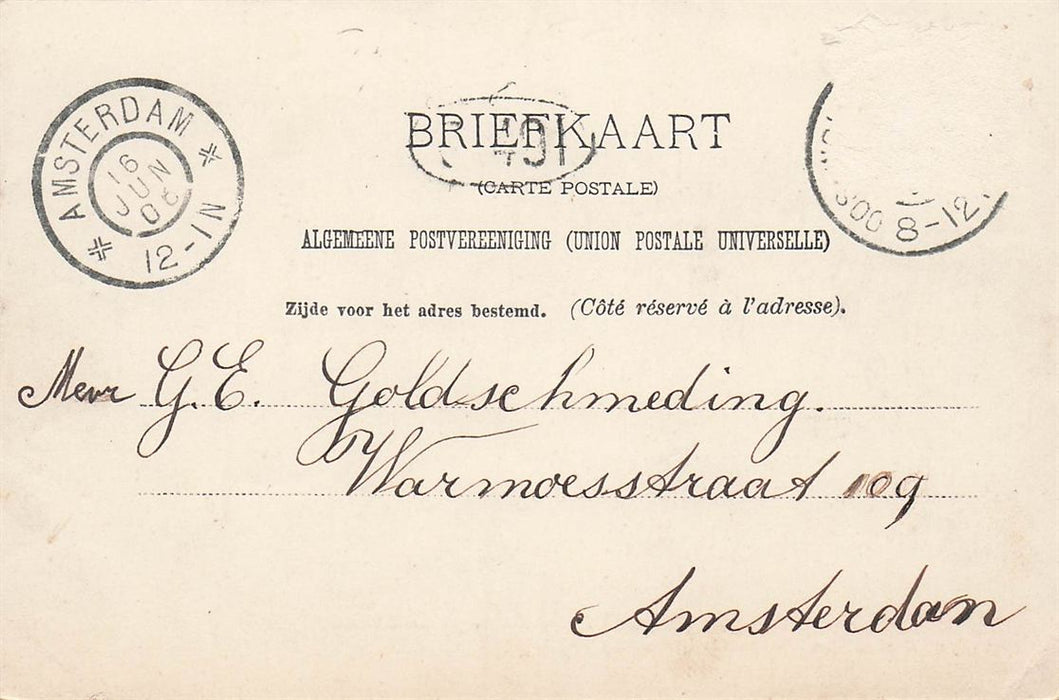 AMSTERDAM
16 JUN 06
12-1 N
BRIEFKAART
(CARTE POSTALE)
8-12
ALGEMEENE POSTVEREENIGING (UNION POSTALE UNIVERSELLE)
Zijde voor het adres bestemd. (Côté réservé à l'adresse).
Mevr G. E. Goldschmeding.
Warmoesstraat 109
Amsterdam